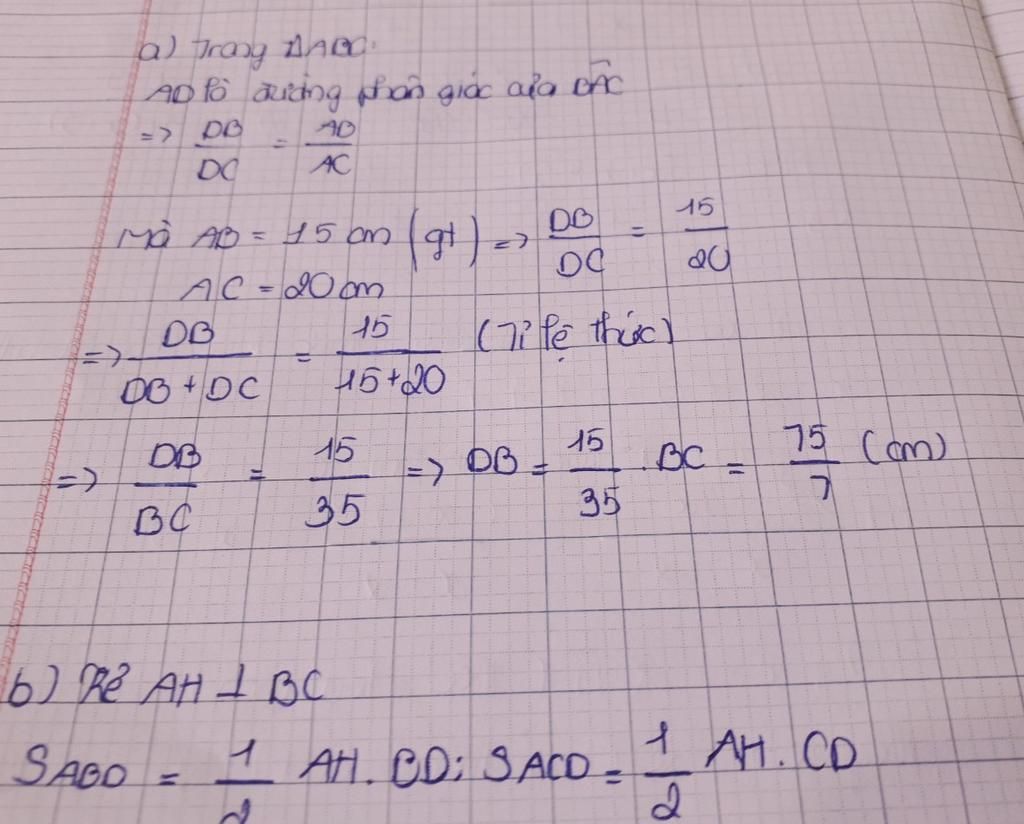 a) Trong ΔABC:
AD là đường phân giác của BÂC
=> DB/DC = AB/AC
Mà AB = 15 cm (gt) => DB/DC = 15/20
AC = 20 cm
=> DB/(DB + DC) = 15/(15+20) (Tỉ lệ thức)
=> DB/BC = 15/35 => DB = 15/35 . BC = 75/7 (cm)
b) Kẻ AH ⊥ BC
SABD = 1/2 AH. BD; SACD = 1/2 AH. CD